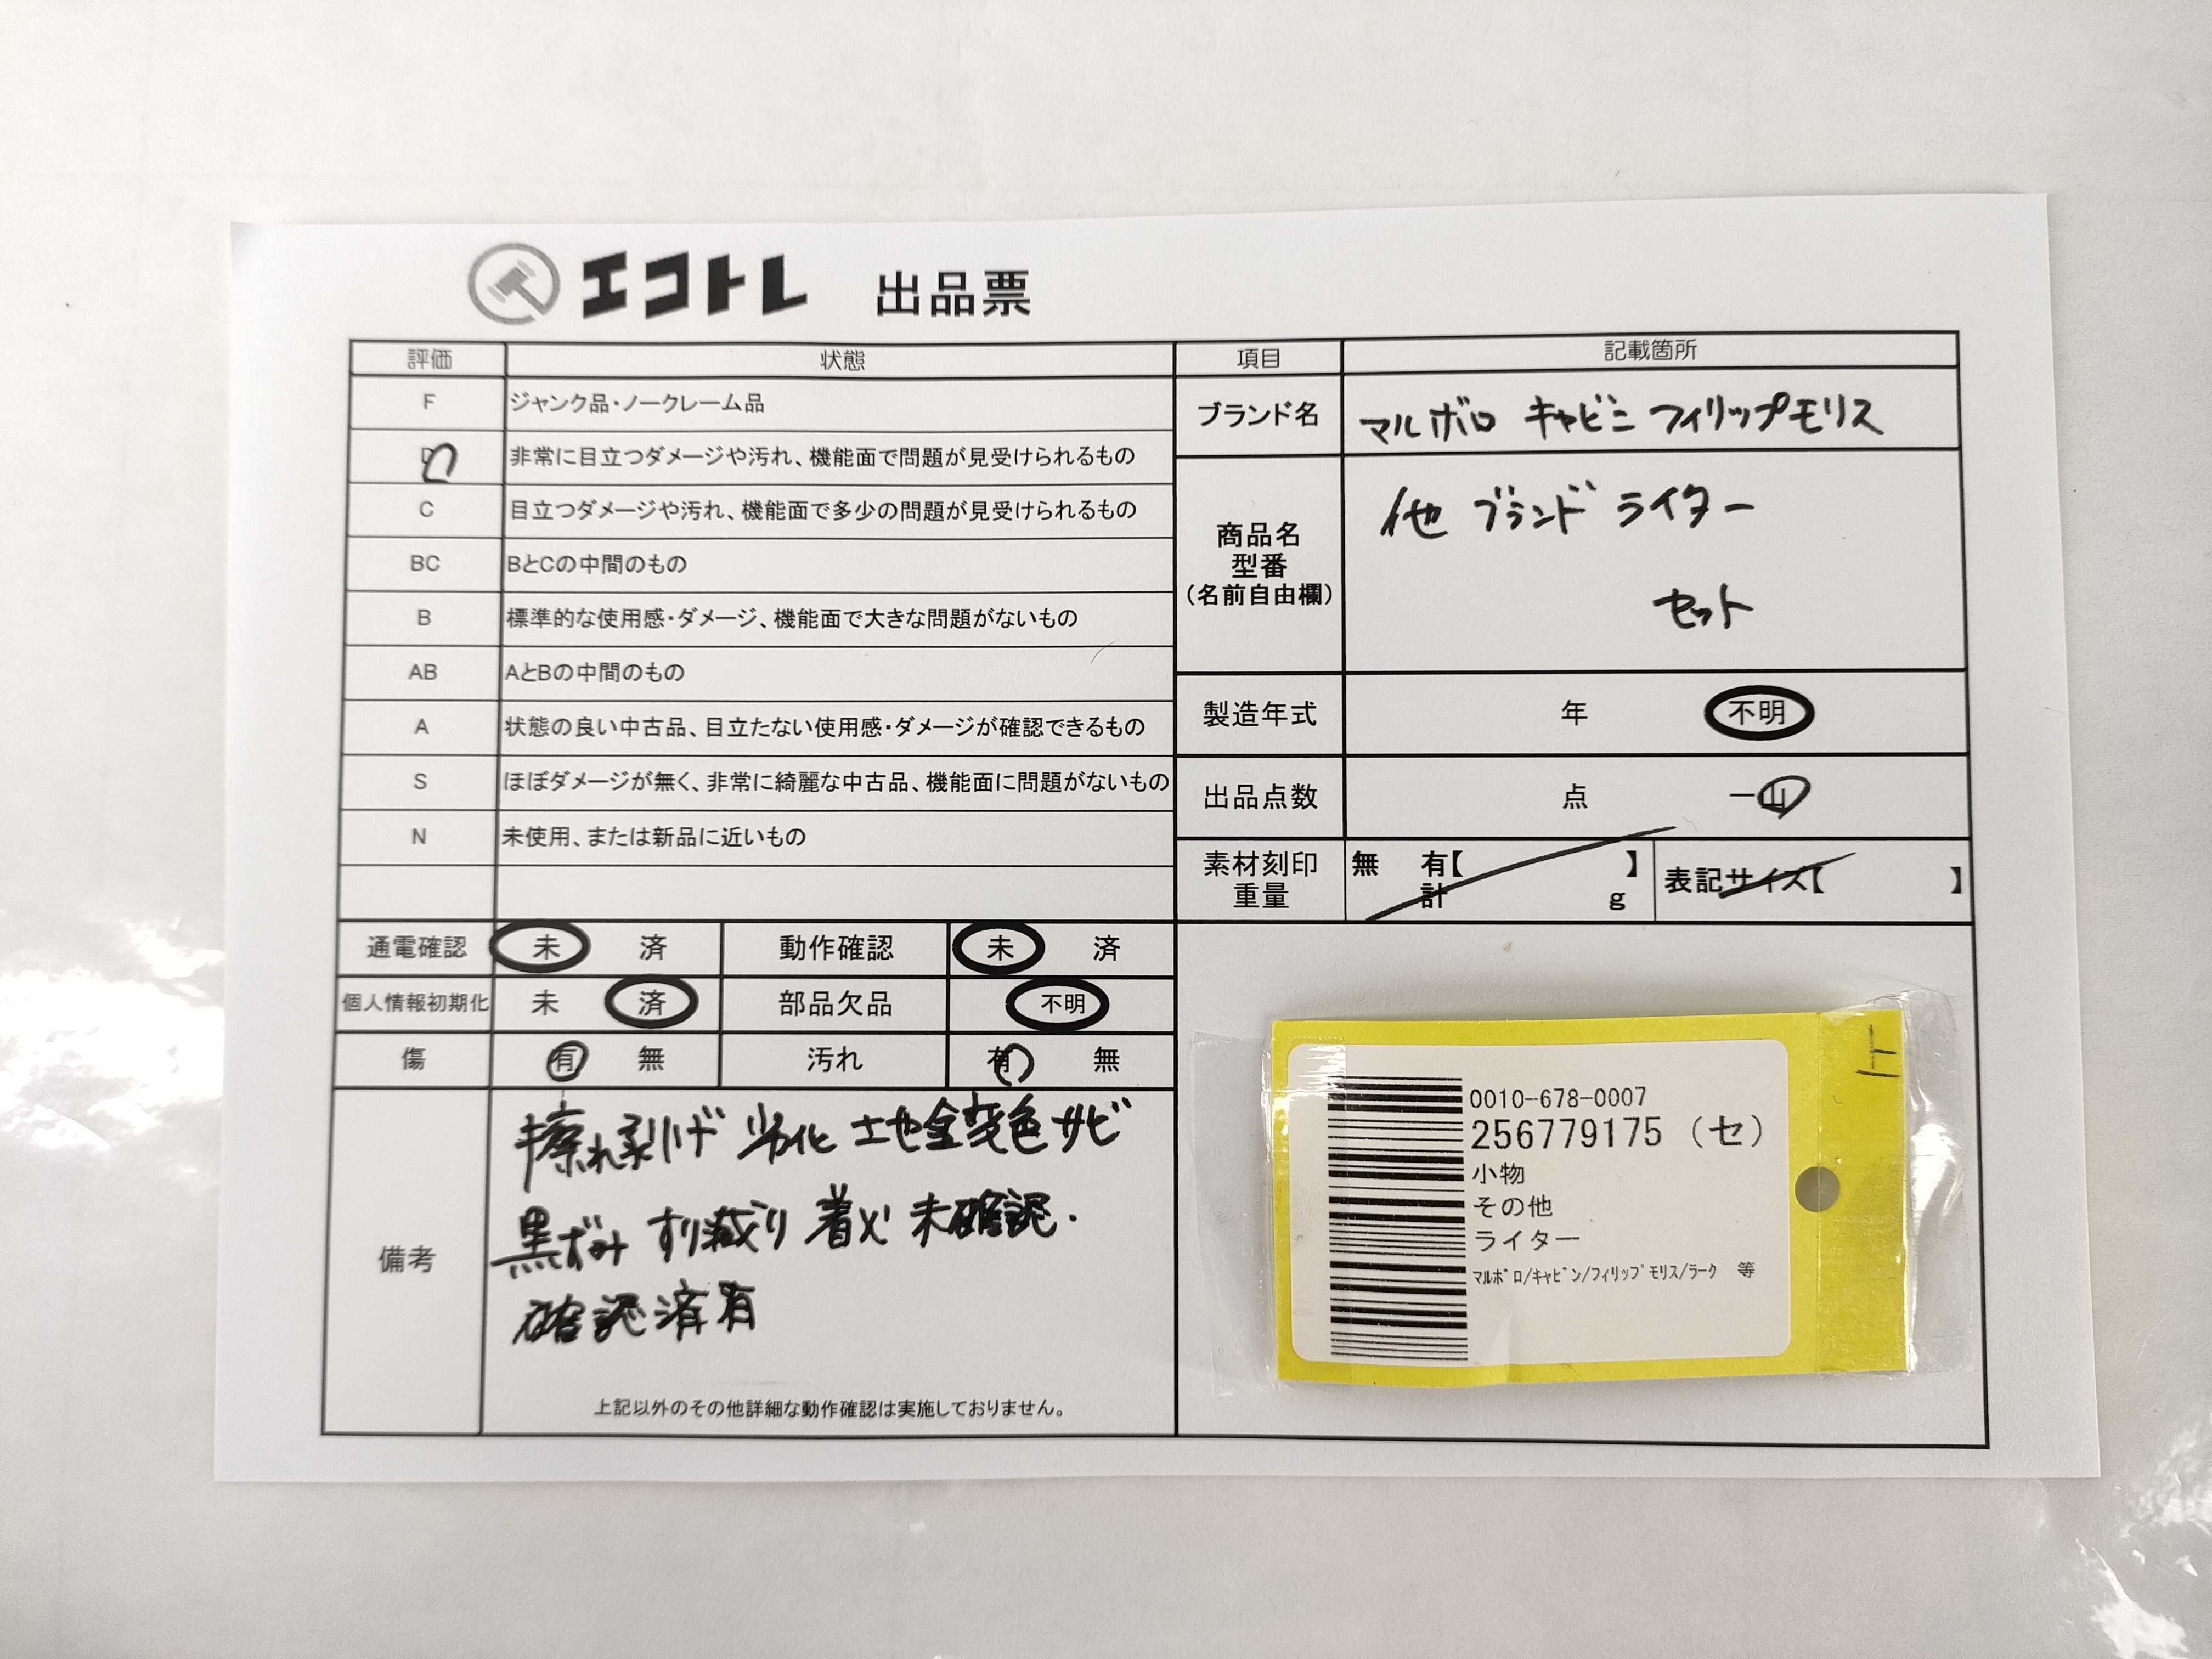 エコトレ 出品票
評価 状態
F ジャンク品・ノークレーム品
D 非常に目立つダメージや汚れ、機能面で問題が見受けられるもの
C 目立つダメージや汚れ、機能面で多少の問題が見受けられるもの
BC BとCの中間のもの
B 標準的な使用感・ダメージ、機能面で大きな問題がないもの
AB AとBの中間のもの
A 状態の良い中古品、目立たない使用感・ダメージが確認できるもの
S ほぼダメージが無く、非常に綺麗な中古品、機能面に問題がないもの
N 未使用、または新品に近いもの
通電確認 未 済 動作確認 未 済
個人情報初期化 未 済 部品欠品 不明
傷 有 無 汚れ 有 無
備考
擦れ剥げ 劣化 土地金変色 サビ
黒ずみ すり減り 着火 未確認.
確認済有
上記以外のその他詳細な動作確認は実施しておりません。
項目 記載箇所
ブランド名 マルボロ キャビン フィリップモリス
商品名
型番
(名前自由欄)
他 ブランド ライター
セット
製造年式 年 不明
出品点数 点 一山
素材刻印
重量
無 有【 】
計 g
表記サイズ【 】
上
0010-678-0007
256779175 (セ)
小物
その他
ライター
ﾏﾙﾎﾞﾛ/ｷｬﾋﾞﾝ/ﾌｨﾘｯﾌﾟﾓﾘｽ/ﾗｰｸ 等